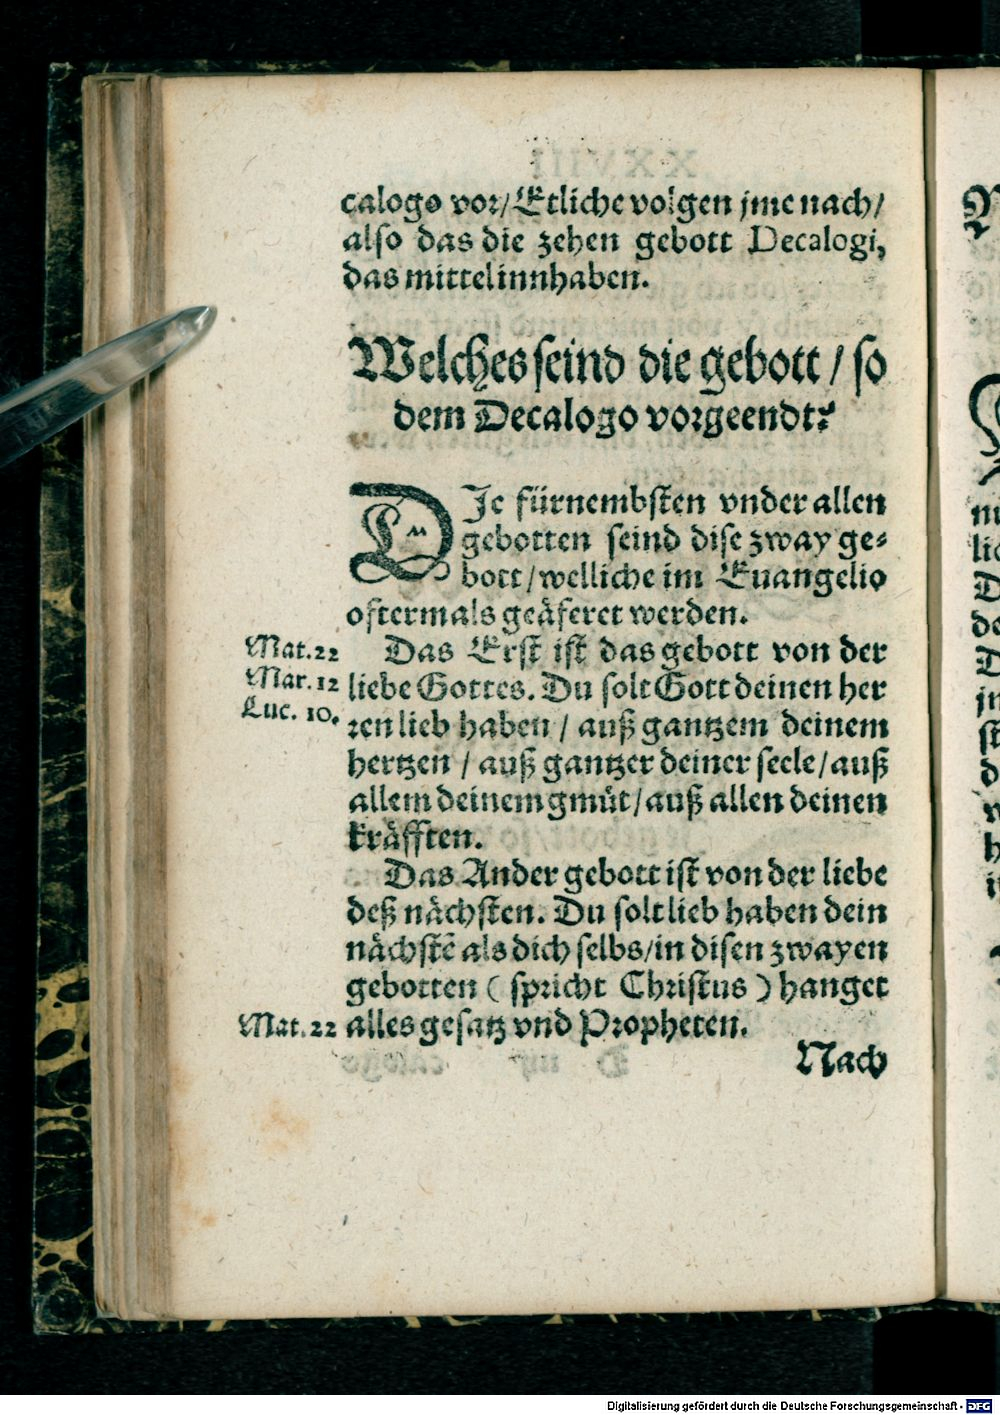 calogo vor/Etliche volgen jme nach/
also das die zehen gebott Decalogi,
das mittel innhaben.
Welches seind die gebott / so
dem Decalogo vorgeendt?
DIe fürnembsten vnder allen
gebotten seind dise zway ge-
bott/welliche im Euangelio
oftermals geäferet werden.
Mat. 22 Das Erst ist das gebott von der
Mar. 12 liebe Gottes. Du solt Gott deinen her
Luc. 10. ren lieb haben / auß gantzem deinem
hertzen / auß gantzer deiner seele/auß
allem deinem gmüt/auß allen deinen
kräfften.
Das Ander gebott ist von der liebe
deß nächsten. Du solt lieb haben dein
nächstē als dich selbs/in disen zwayen
gebotten ( spricht Christus ) hanget
Mat. 22 alles gesatz vnd Propheten.
Nach
Digitalisierung gefördert durch die Deutsche Forschungsgemeinschaft - DFG